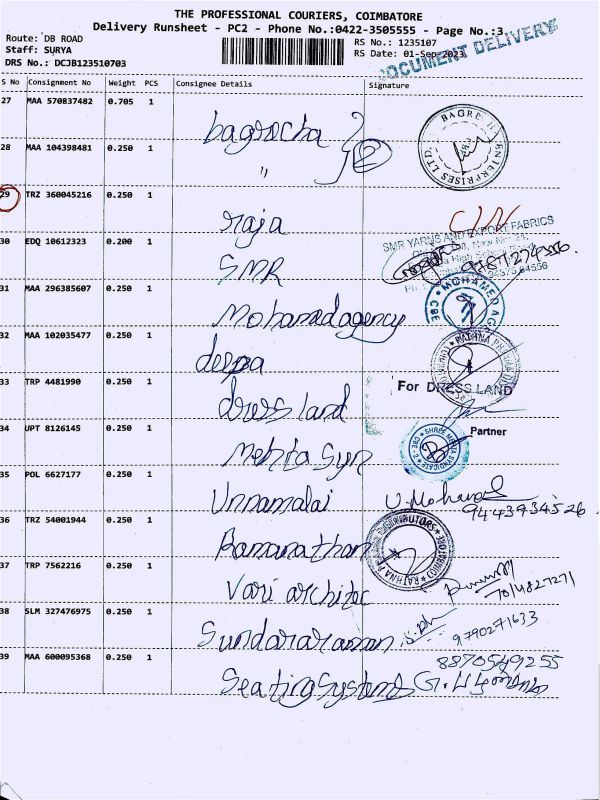 THE PROFESSIONAL COURIERS, COIMBATORE
Delivery Runsheet - PC2 - Phone No.:0422-3505555 - Page No.:3
Route: DB ROAD
Staff: SURYA
DRS No.: DCJB123510703
RS No.: 1235107
RS Date: 01-Sep-2023
DOCUMENT DELIVERY
S No Consignment No Weight PCS Consignee Details Signature
27 MAA 570837482 0.705 1
bagrecha
28 MAA 104398481 0.250 1
" 2
29 TRZ 360045216 0.250 1
raja
30 EDQ 10612323 0.200 1
SMR
SMR YARNS AND EXPORT FABRICS
31 MAA 296385607 0.250 1
Mohamed agency
MOHAMED AG
CBE
32 MAA 102035477 0.250 1
deepa
33 TRP 4481990 0.250 1
dress land
For DRESS LAND
Partner
34 UPT 8126145 0.250 1
Mehta Syn
35 POL 6627177 0.250 1
Unnamalai
9443934526
36 TRZ 54001944 0.250 1
Ramanathan
37 TRP 7562216 0.250 1
Vari architec
7014827271
38 SLM 327476975 0.250 1
Sundararaman
9790271633
39 MAA 600095368 0.250 1
Seating Systems
88705491255